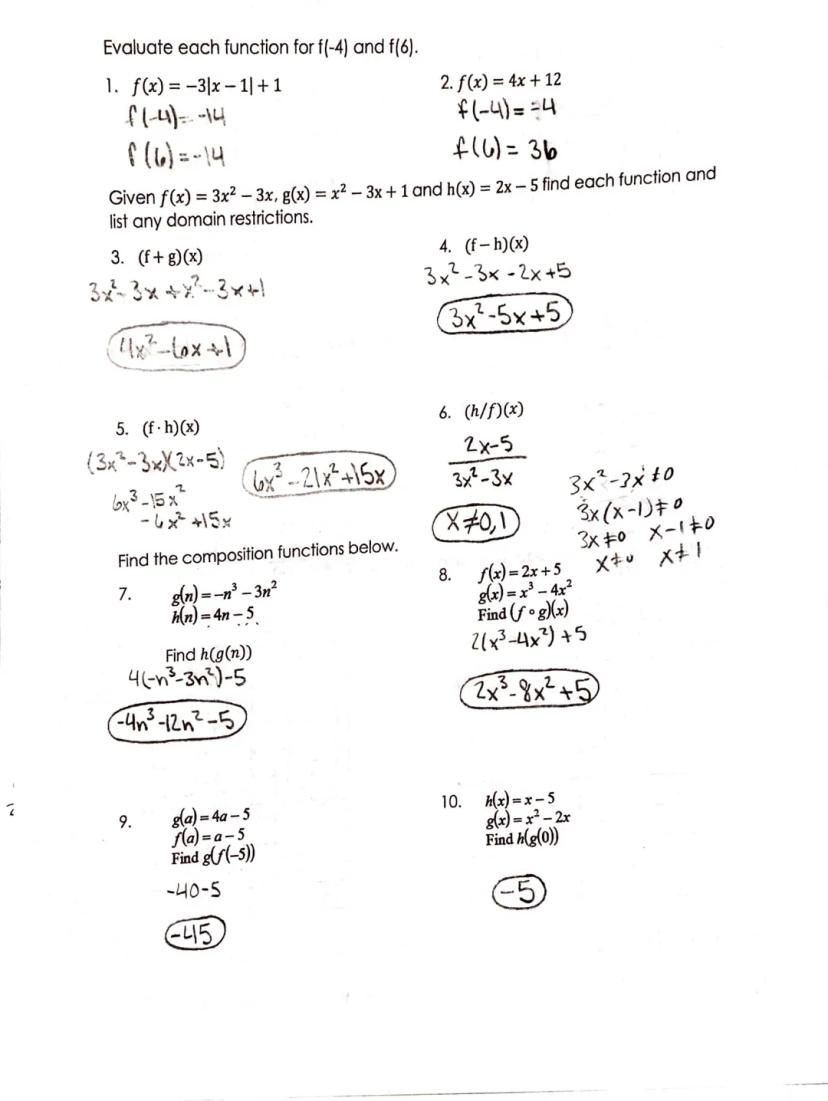 Evaluate each function for f(-4) and f(6).
1. f(x) = −3|x − 1| + 1
2. f(x) = 4x + 12
f(-4) = -14
f(-4) = -4
f(6) = -14
f(6) = 36
Given f(x) = 3x² − 3x, g(x) = x² − 3x + 1 and h(x) = 2x − 5 find each function and
list any domain restrictions.
3. (f + g)(x)
4. (f − h)(x)
3x²-3x+x²-3x+1
3x²-3x-2x+5
4x²-6x+1
3x²-5x+5
5. (f · h)(x)
6. (h/f)(x)
(3x²-3x)(2x-5)
6x³-15x²
-6x²+15x
6x³-21x²+15x
2x-5
3x²-3x
x≠0,1
3x²-3x≠0
3x(x-1)≠0
3x≠0 x-1≠0
x≠0 x≠1
Find the composition functions below.
7. g(n) = −n³ − 3n²
h(n) = 4n − 5
Find h(g(n))
4(-n³-3n²)-5
-4n³-12n²-5
8. f(x) = 2x + 5
g(x) = x³ − 4x²
Find (f ∘ g)(x)
2(x³-4x²)+5
2x³-8x²+5
9. g(a) = 4a − 5
f(a) = a − 5
Find g(f(−5))
-40-5
-45
10. h(x) = x − 5
g(x) = x² − 2x
Find h(g(0))
-5